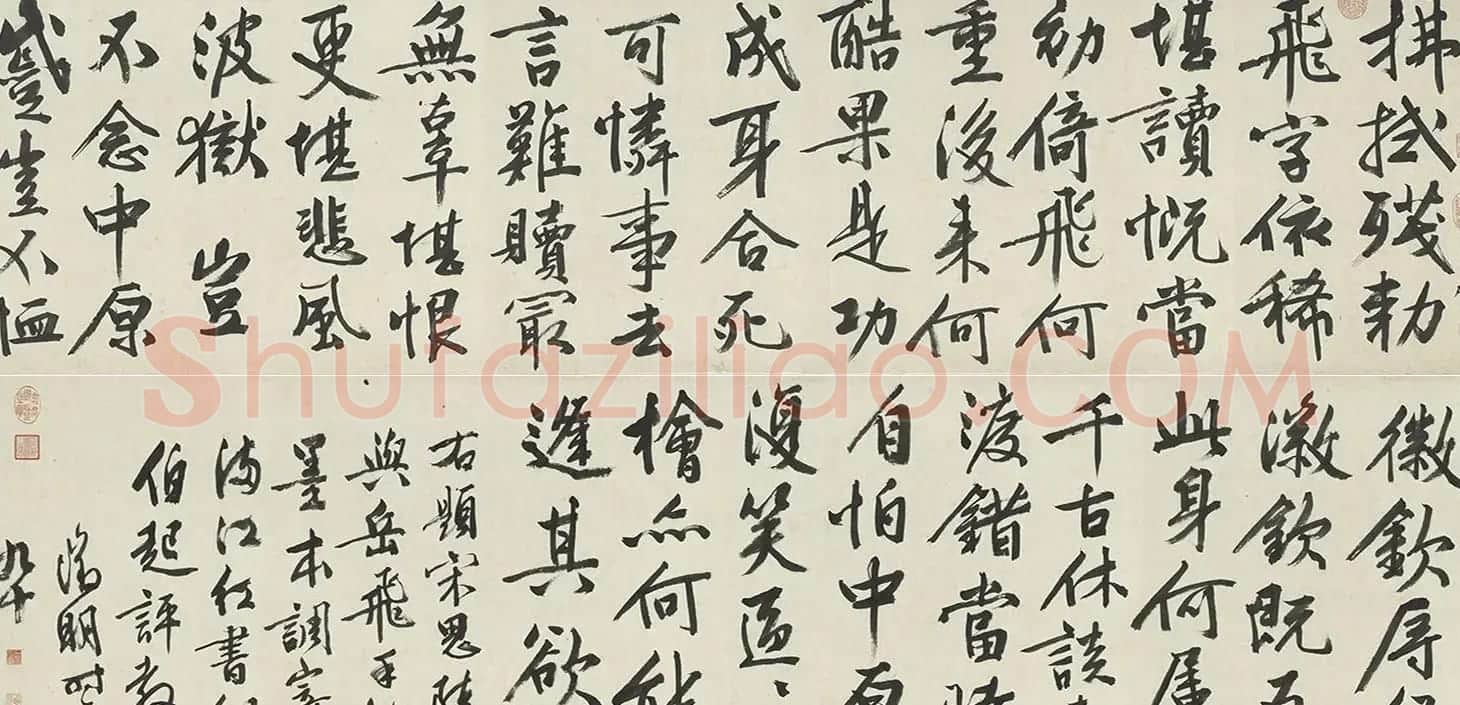 拂拭殘勅
飛字依稀
堪讀慨當
初倚飛何
重後来何
酷果是功
成身合死
可憐事去
言難贖冣
無辜堪恨
更堪悲風
波獄 豈
不念中原
豈不恤
徽欽辱
徽欽既
此身何屬
千古休談
渡錯當時
自怕中原
復笑區〻
檜亦何能
逢其欲
右題宋思陵
與岳飛手
墨本調寄
滿江紅書
伯起評教
徵明時
九十
Shufaziliao.COM